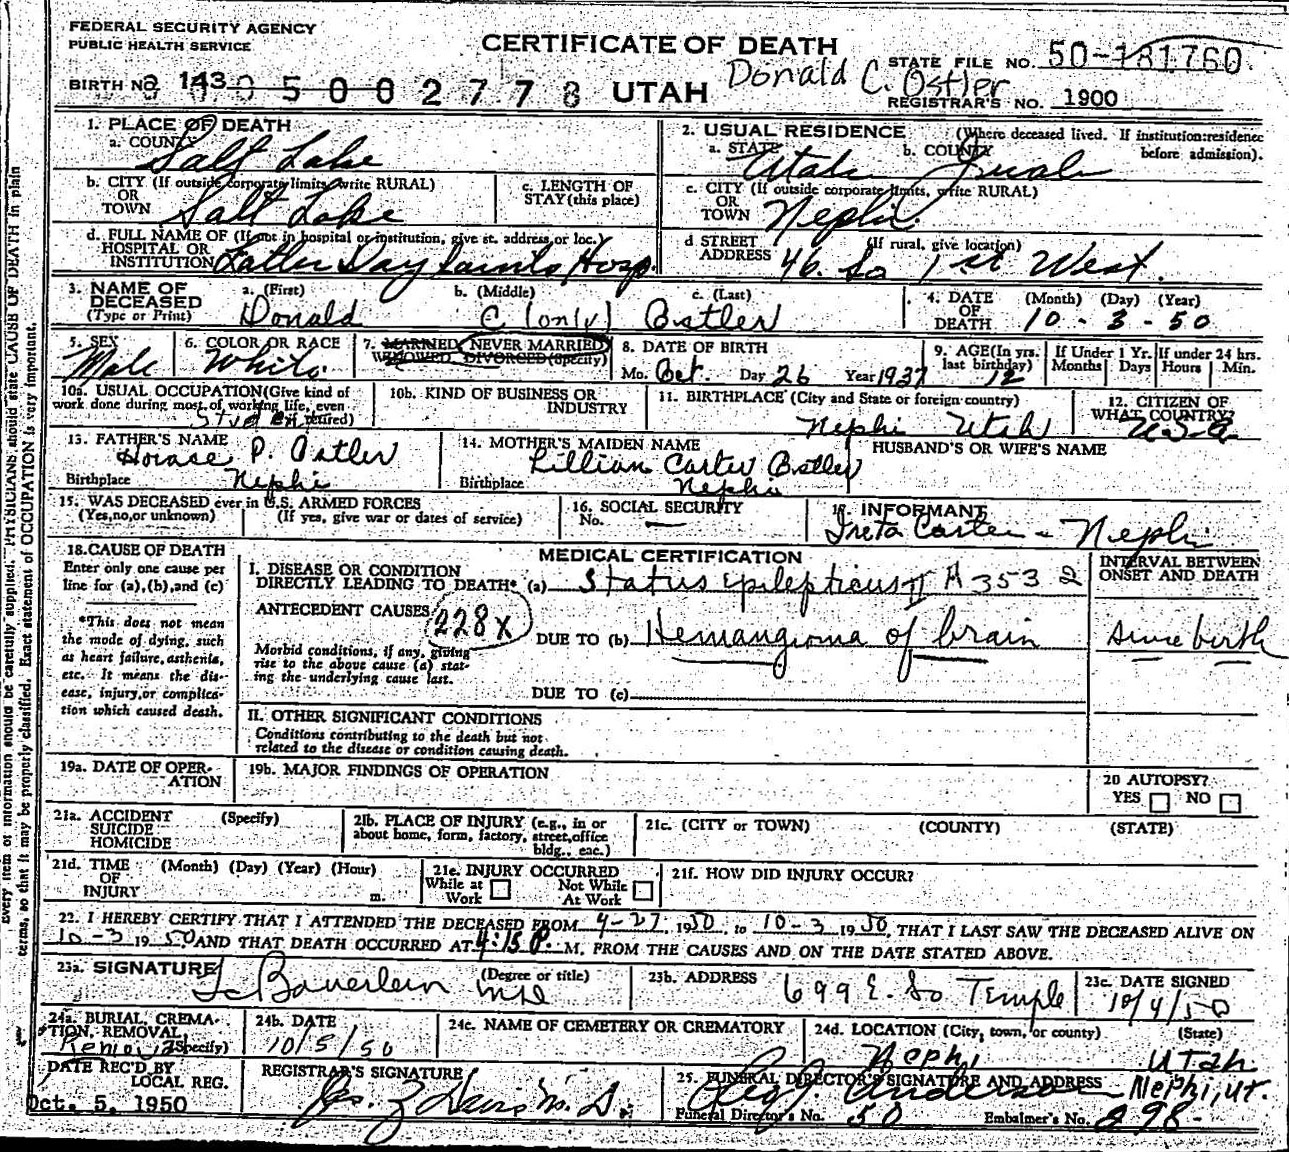 FEDERAL SECURITY AGENCY
PUBLIC HEALTH SERVICE
CERTIFICATE OF DEATH
STATE FILE NO. 50-181760
BIRTH NO. 143 5002778 UTAH Donald C. Ostler
REGISTRAR'S NO. 1900
1. PLACE OF DEATH
a. COUNTY Salt Lake
2. USUAL RESIDENCE (Where deceased lived. If institution:residence before admission).
a. STATE Utah b. COUNTY Juab
b. CITY (If outside corporate limits, write RURAL) OR TOWN Salt Lake
c. LENGTH OF STAY (this place)
c. CITY (If outside corporate limits, write RURAL) OR TOWN Nephi
d. FULL NAME OF (If not in hospital or institution, give st. address or loc.) HOSPITAL OR INSTITUTION Latter Day Saints Hosp.
d STREET ADDRESS (If rural, give location) 46. So 1st West.
3. NAME OF DECEASED (Type or Print)
a. (First) Donald b. (Middle) C (only) c. (Last) Ostler
4. DATE OF DEATH (Month) (Day) (Year) 10-3-50
5. SEX Male
6. COLOR OR RACE White
7. MARRIED, NEVER MARRIED WIDOWED, DIVORCED (Specify)
8. DATE OF BIRTH Mo. Oct. Day 26 Year 1937
9. AGE (In yrs. last birthday) 12
If Under 1 Yr. Months Days
If under 24 hrs. Hours Min.
10a. USUAL OCCUPATION (Give kind of work done during most of working life, even retired) Student
10b. KIND OF BUSINESS OR INDUSTRY
11. BIRTHPLACE (City and State or foreign country) Nephi Utah
12. CITIZEN OF WHAT COUNTRY? U.S.A
13. FATHER'S NAME Horace P. Ostler
Birthplace Nephi
14. MOTHER'S MAIDEN NAME Lillian Carter Ostler
Birthplace Nephi
HUSBAND'S OR WIFE'S NAME
15. WAS DECEASED ever in U.S. ARMED FORCES
(Yes,no,or unknown) (If yes, give war or dates of service)
16. SOCIAL SECURITY No. —
17. INFORMANT Ireta Carter - Nephi
18. CAUSE OF DEATH
Enter only one cause per line for (a),(b),and (c)
*This does not mean the mode of dying, such as heart failure, asthenia, etc. It means the disease, injury, or complication which caused death.
MEDICAL CERTIFICATION
INTERVAL BETWEEN ONSET AND DEATH
I. DISEASE OR CONDITION DIRECTLY LEADING TO DEATH* (a) Status epilepticus II A 353 2
ANTECEDENT CAUSES 228X
Morbid conditions, if any, giving rise to the above cause (a) stating the underlying cause last.
DUE TO (b) Hemangioma of brain since birth
DUE TO (c)
II. OTHER SIGNIFICANT CONDITIONS
Conditions contributing to the death but not related to the disease or condition causing death.
19a. DATE OF OPERATION
19b. MAJOR FINDINGS OF OPERATION
20 AUTOPSY? YES NO
21a. ACCIDENT SUICIDE HOMICIDE (Specify)
21b. PLACE OF INJURY (e.g., in or about home, form, factory, street,office bldg., eac.)
21c. (CITY or TOWN) (COUNTY) (STATE)
21d. TIME OF INJURY (Month) (Day) (Year) (Hour) m.
21e. INJURY OCCURRED While at Work Not While At Work
21f. HOW DID INJURY OCCUR?
22. I HEREBY CERTIFY THAT I ATTENDED THE DECEASED FROM 9-27, 1950, to 10-3 1950, THAT I LAST SAW THE DECEASED ALIVE ON
10-3 1950 AND THAT DEATH OCCURRED AT 4:15 P. M. FROM THE CAUSES AND ON THE DATE STATED ABOVE.
23a. SIGNATURE L Bauerlein MD (Degree or title)
23b. ADDRESS 699 E. So Temple
23c. DATE SIGNED 10/4/50
24a. BURIAL, CREMATION, REMOVAL (Specify) Removal
24b. DATE 10/5/50
24c. NAME OF CEMETERY OR CREMATORY
24d. LOCATION (City, town, or county) (State) Nephi Utah
DATE REC'D BY LOCAL REG. Oct. 5, 1950
REGISTRAR'S SIGNATURE
25. FUNERAL DIRECTOR'S SIGNATURE AND ADDRESS Anderson Nephi, Ut.
Funeral Director's No. 50 Embalmer's No. 298
Every item of information should be carefully supplied. PHYSICIANS should state CAUSE OF DEATH in plain
terms, so that it may be properly classified. Exact statement of OCCUPATION is very important.